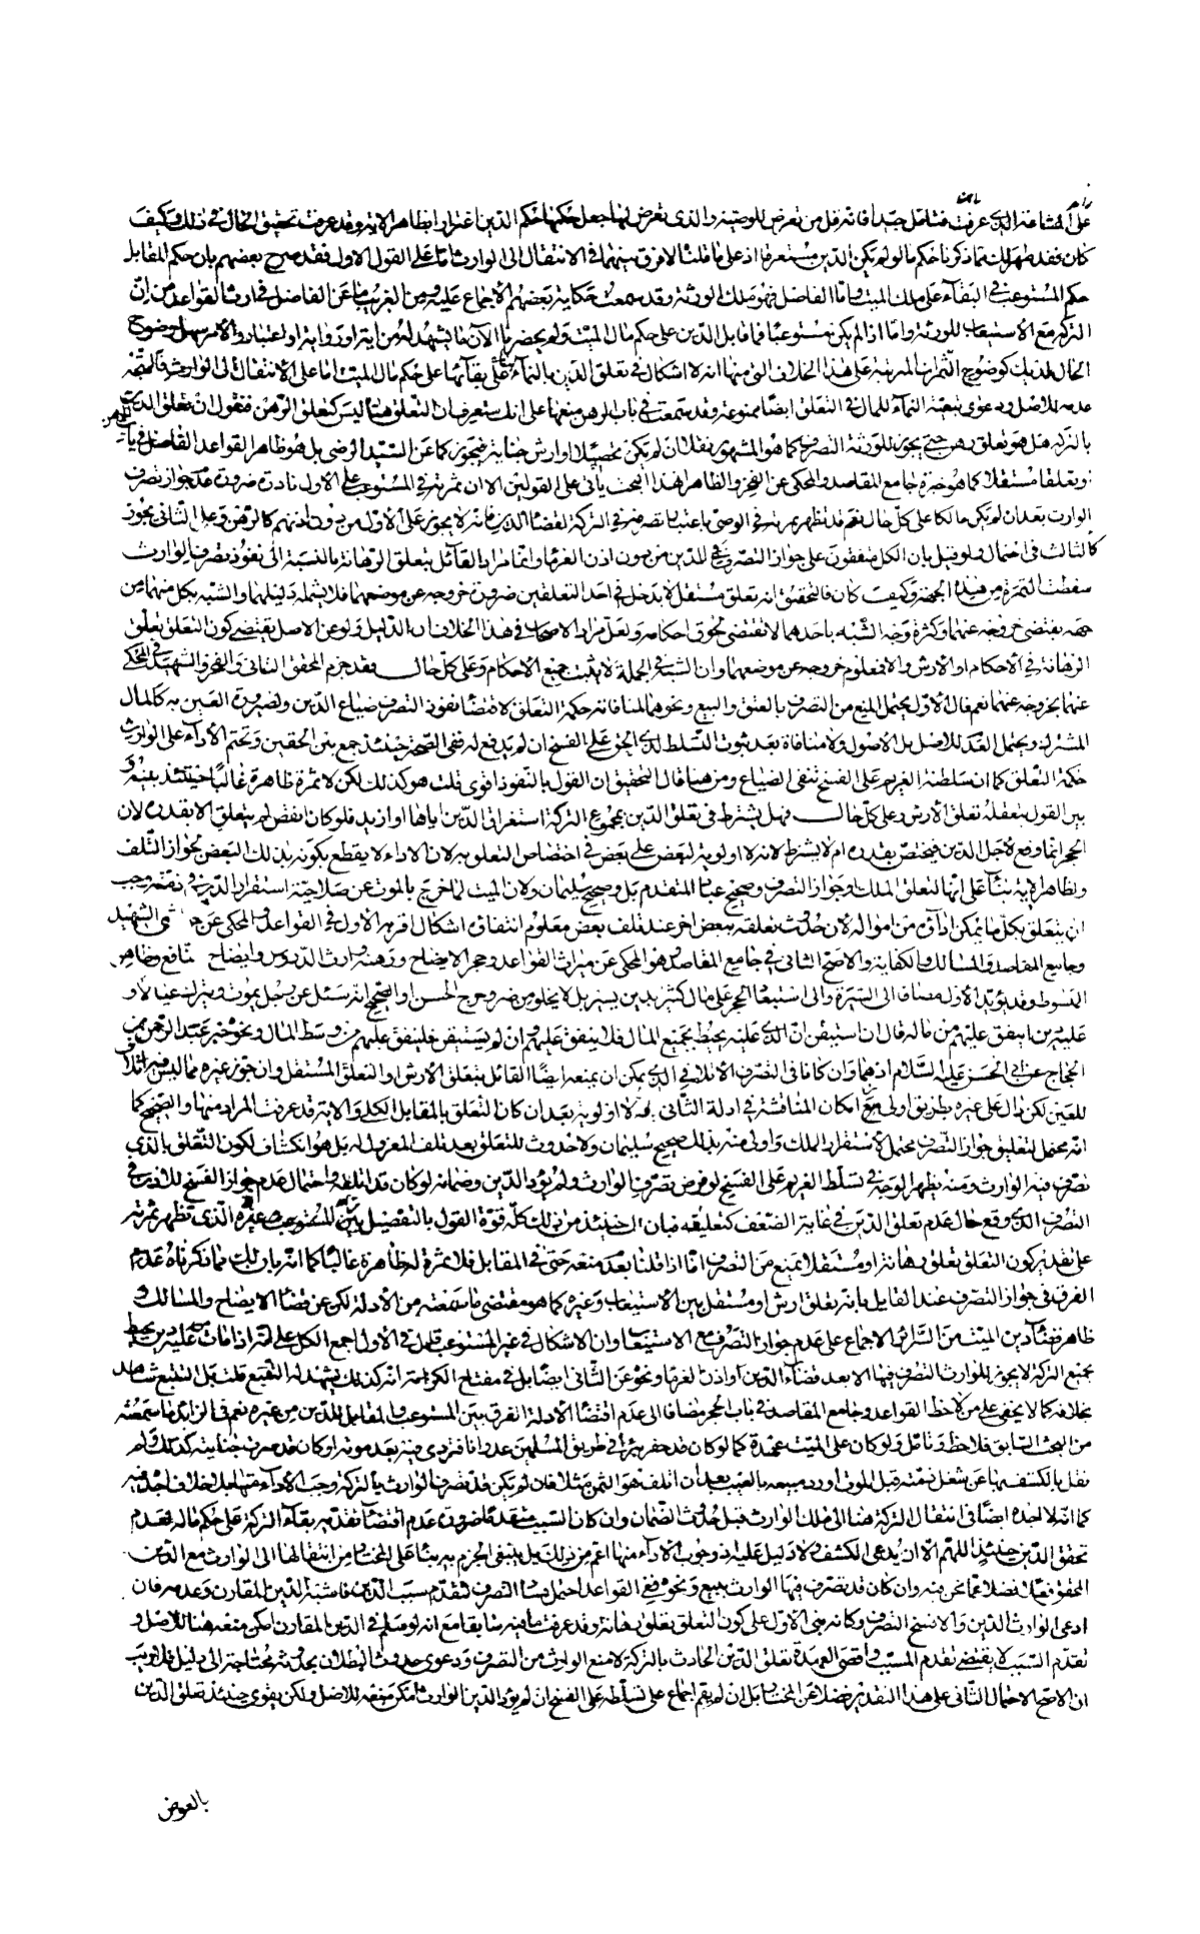 على المشاعة الذي عرفت فتأمل جيدا فانه قل من تعرض للوصية والذي تعرض لها جعل حكمها حكم الدين اغترارا بظاهر الآية وقد عرفت تحقيق الحال في ذلك وكيف
كان فقد ظهر لك مما ذكرنا حكم ما لو لم يكن الدين مستغرقا اذ على ما قلنا لا فرق بينهما في الانتقال الى الوارث اما على القول الاول فقد صرح بعضهم بان حكم المقابل
حكم المستوعب في البقاء على ملك الميت واما الفاضل فهو ملك الورثة وقد سمعت حكاية بعضهم الاجماع عليه ومن الغريب ما عن الفاضل في ارث القواعد من ان
التركة مع الاستيعاب للورثة واما اذا لم يكن مستوعبا فما قابل الدين على حكم مال الميت ولم يحضرنا الآن ما يشهد له من آية او رواية او اعتبار والامر سهل لوضوح
الحال لديك كوضوح الثمرات المترتبة على هذا الخلاف التي منها انه لا اشكال في تعلق الدين بالنماء على بقائها على حكم مال الميت اما على الانتقال الى الوارث فالمتجه
عدمه للاصل ودعوى تبعية النماء للمال في التعلق ايضا ممنوعة وقد سمعت في باب الرهن منعها على انك ستعرف ان التعلق هنا ليس كتعلق الرهن فنقول ان تعلق الدين
بالتركة هل هو تعلق رهن حتى يجوز للورثة التصرف كما هو المشهور نقلا ان لم يكن تحصيلا او ارش جناية فيجوز كما عن السيد الرضي بل هو ظاهر القواعد الفاضل في باب
او تعلقا مستقلا كما هو خيرة جامع المقاصد والمحكي عن الفخر والظاهر هذا البحث يأتي على القولين الا ان ثمرته في المستوعب على الاول نادرة ضرورة عدم جواز تصرف
الوارث بعد ان لم يكن مالكا على كل حال نعم قد تظهر ثمرته في الوصي باعتبار تصرفه في التركة لقضاء الدين فانه لا يجوز على الاول من دون اذنهم كالرهن وعلى الثاني يجوز
كالثالث في احتمال ولو قيل بان الكل متفقون على جواز التصرف للدين من دون اذن الغرماء وانما مراد القائل بتعلق الرهانة بالنسبة الى نفوذ تصرف الوارث
سقطت الثمرة من هذه الجهة وكيف كان فالتحقيق انه تعلق مستقل لا يدخل في احد التعلقين ضرورة خروجه عن موضعهما فلا يشمله دليلهما والشبه بكل منهما من
جهة يقتضي خروجه عنهما وكثرة وجه الشبه باحدهما لا تقتضي لحوق احكامه ولعل مراد الاصحاب في هذا الخلاف ان الدليل ولو عن الاصل يقتضي كون التعلق تعلق
الرهانة في الاحكام او الارش والا فمعلوم خروجه عن موضعهما وان الشبه في الجملة لا يثبت جميع الاحكام وعلى كل حال فقد جزم المحقق الثاني والفخر والشهيد في المحكي
عنهما بخروجه عنهما نعم قال الاول يحتمل المنع من التصرف بالعتق والبيع ونحوهما لمنافاته حكمة التعلق لاقتضاء نفوذ التصرف ضياع الدين ولصيرورة العين به كالمال
المشترك ويحتمل العدم للاصل بل الاصول ولا منافاة بعد ثبوت التسلط لذي الحق على الفسخ ان لم يدفع له ففي الصحة حينئذ جمع بين الحقين وتحتم الأداء على الوارث
حكمة التعلق كما ان سلطنة الغريم على الفسخ تنفي الضياع ومن هنا قال التحقيق ان القول بالنفوذ اقوى قلت هو كذلك لكن لا ثمرة ظاهرة غالبا حينئذ بينه و
بين القول بتعلقه تعلق الارش وعلى كل حال فهل يشترط في تعلق الدين بمجموع التركة استغراق الدين اياها او ازيد فلو كان انقص لم يتعلق الا بقدره لان
الحجر انما وقع لاجل الدين فيختص بقدره ام لا يشترط لانه لا اولوية لبعض على بعض في اختصاص التعلق به لان الاداء لا يقطع بكونه بذلك البعض لجواز التلف
ولظاهر الآية بناء على انها لتعلق الملك وجواز التصرف وصحيح عباد المتقدم بل وصحيح سليمان ولان الميت لما خرج بالموت عن صلاحية استقرار الدين في ذمته وجب
ان يتعلق بكل ما يمكن اداؤه من امواله لان حدوث تعلقه ببعض آخر عند تلف بعض معلوم انتفاؤه اشكال اقربه الاول في القواعد والمحكي عن حواشي الشهيد
وجامع المقاصد والمسالك والكفاية والاصح الثاني في جامع المقاصد وهو المحكي عن ميراث القواعد وحجر الايضاح ورهنه وارث الدروس وايضاح النافع وظاهر
المبسوط وقد يؤيد الاول مضافا الى السيرة والى استبعاد الحجر على مال كثير بدين يسير بل لا يخلو من ضرر وحرج الحسن او الصحيح انه سئل عن رجل يموت ويترك عيالا و
عليه دين اينفق عليهم من ماله قال ان استيقن ان الذي عليه يحيط بجميع المال فلا ينفق عليهم وان لم يستيقن فلينفق عليهم من وسط المال ونحوه خبر عبد الرحمن بن
الحجاج عن ابي الحسن عليه السلام اذ هما وان كانا في التصرف الاتلافي الذي يمكن ان يمنعه ايضا القائل بتعلق الارش او التعلق المستقل وان جوز غيره مما ليس فيه اتلاف
للعين لكن دال على غيره بطريق اولى مع امكان المناقشة في ادلة الثاني بانه لا اولوية بعد ان كان التعلق بالمقابل الكلي والآية قد عرفت المراد منها والصحيح كما
انه محتمل لتعليق جواز التصرف محتمل لاستقرار الملك واولى منه بذلك صحيح سليمان ولا حدوث للتعلق بعد تلف المعزول له بل هو انكشاف لكون التعلق بالذي
تصرف فيه الوارث ومنه يظهر الوجه في تسلط الغريم على الفسخ لو فرض تصرف الوارث ولم يؤد الدين وضمانه لو كان قد اتلفه واحتمال عدم جواز الفسخ للاذن في
التصرف الذي وقع حال عدم تعلق الدين في غاية الضعف كتعليقه فبان لك حينئذ من ذلك كله قوة القول بالتفصيل بين المستوعب وغيره الذي تظهر ثمرته
على تقدير كون التعلق تعلق رهانة او مستقلا يمنع من التصرف اما اذا قلنا بعدم منعه حتى في المقابل فلا ثمرة له ظاهرة غالبا كما انه بان لك مما ذكرناه عدم
الفرق في جواز التصرف عند القائل بانه تعلق ارش او مستقل بين الاستيعاب وغيره كما هو مقتضى ما سمعته من الادلة لكن عن قضاء الايضاح والمسالك و
ظاهر قضاء دين الميت من السرائر الاجماع على عدم جواز التصرف مع الاستيعاب وان الاشكال في غير المستوعب قال في الاول اجمع الكل على انه اذا مات من عليه دين يحيط
بجميع التركة لا يجوز للوارث التصرف فيها الا بعد قضاء الدين او اذن الغرماء ونحوه عن الثاني ايضا بل في مفتاح الكرامة انه كذلك يشهد له التتبع قلت بل التتبع شاهد
بخلافه كما لا يخفى على من لاحظ القواعد وجامع المقاصد في باب الحجر مضافا الى عدم اقتضاء الادلة الفرق بين المستوعب والمقابل للدين من غيره نعم في الزائد ما سمعته
من البحث السابق فلاحظ وتأمل ولو كان على الميت عهدة كما لو كان قد حفر بئرا في طريق المسلمين عدوانا فتردى فيه بعد موته او كان قد سرت جنايته كذلك ولم
نقل بالكشف بها عن شغل ذمته قبل الموت او رد مبيعه بالعيب بعد ان اتلف هو الثمن مثلا فان لم يكن قد تصرف الوارث بالتركة وجب الأداء منها بلا خلاف اجده فيه
كما انه لا اجده ايضا في انتقال التركة هنا الى ملك الوارث قبل حدوث الضمان وان كان السبب متقدما ضرورة عدم اقتضاء تقدمه بقاء التركة على حكم ماله لعدم
تحقق الدين حينئذ اللهم الا ان يدعى الكشف ولا دليل عليه اذ وجوب الاداء منها اعم من ذلك بل ينبغي الجزم به بناء على المختار من انتقالها الى الوارث مع الدين
المحقق فعلا فضلا عما نحن فيه وان كان قد تصرف فيها الوارث ببيع ونحوه ففي القواعد احتمل فساد التصرف لتقدم سبب الدين فاشبه الدين المقارن وعدمه فان
ادى الوارث الدين والا فسخ التصرف وكأنه بنى الاول على كون التعلق تعلق رهانة وقد عرفت ما فيه سابقا مع انه لو سلم في الدين المقارن امكن منعه هنا للاصل و
تقدم السبب لا يقتضي تقدم المسبب واقصى العهدة تعلق الدين الحادث بالتركة لا منع الوارث من التصرف ودعوى حدوث البطلان بحدوثه محتاجة الى دليل فلا ريب
ان الاصح الاحتمال الثاني على هذا التقدير فضلا عن المختار بل ان لم يقم اجماع على تسلطه على الفسخ ان لم يؤد الدين الوارث امكن منعه للاصل ولكن يقوى حينئذ تعلق الدين
بالعوض